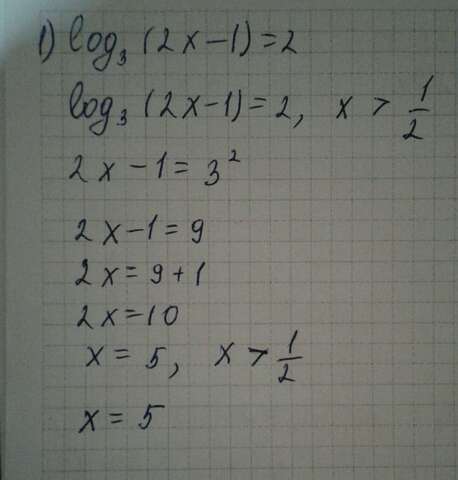 1) log₃ (2x-1)=2
log₃ (2x-1)=2, x > 1/2
2x-1=3²
2x-1=9
2x=9+1
2x=10
x=5, x > 1/2
x=5